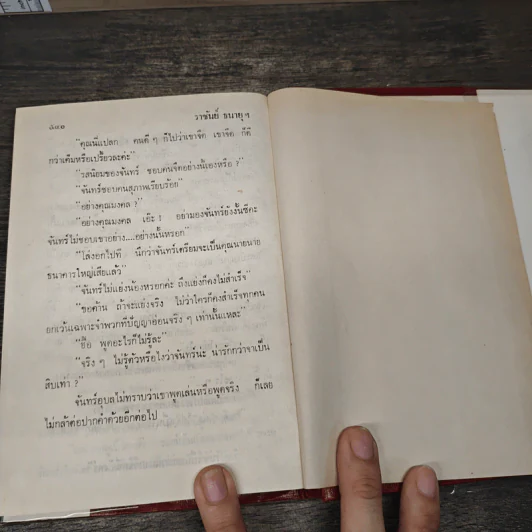 ๘๔๑
วาชันย์ ธนายุฯ
"คุณนี่แปลก คนดี ๆ ก็ไปว่าเขาจืด เขาจืด ก็ดี
กว่าเค็มหรือเปรี้ยวละค่ะ"
"รสนิยมของจันทร์ ชอบคนจืดอย่างนี้เองหรือ ?"
"จันทร์ชอบคนสุภาพเรียบร้อย"
"อย่างคุณมงคล ?"
"อย่างคุณมงคล เอ๊ะ ! อย่ามองจันทร์ยังงั้นซีคะ
จันทร์ไม่ชอบเขาอย่าง....อย่างนั้นหรอก"
"โล่งอกไปที นึกว่าจันทร์เตรียมจะเป็นคุณนายนาย
ธนาคารใหญ่เสียแล้ว"
"จันทร์ไม่แย่งน้องหรอกค่ะ ถึงแย่งก็คงไม่สำเร็จ"
"ขอค้าน ถ้าจะแย่งจริง ไม่ว่าใครก็คงสำเร็จทุกคน
ยกเว้นเฉพาะจำพวกที่ปัญญาอ่อนจริง ๆ เท่านั้นแหละ"
"อื๊อ พูดอะไรก็ไม่รู้ละ"
"จริง ๆ ไม่รู้ตัวหรือไงว่าจันทร์น่ะ น่ารักกว่าจาเป็น
สิบเท่า ?"
จันทร์อุบลไม่ทราบว่าเขาพูดเล่นหรือพูดจริง ก็เลย
ไม่กล้าต่อปากคำด้วยอีกต่อไป